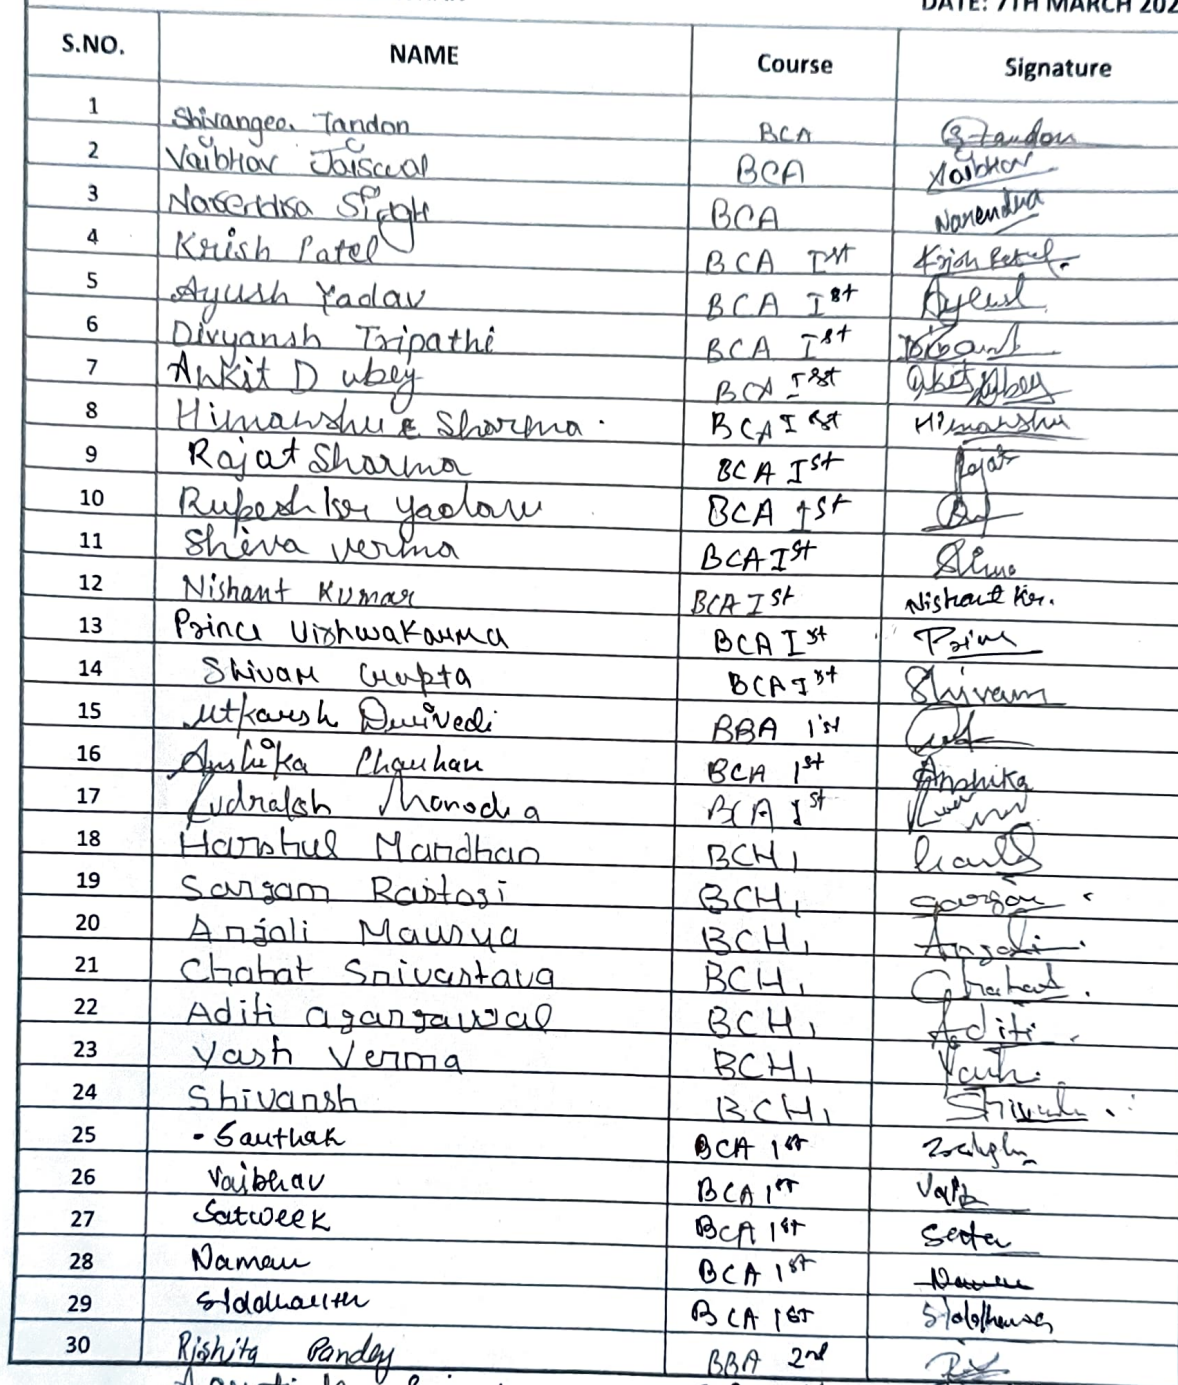 DATE: 7TH MARCH 202
S.NO. NAME Course Signature
1 Tandon BCA Tandon
2 Vaibhav Jaiswal BCA Vaibhav
3 Singh BCA Narendra
4 Krish Patel BCA Ist Krish Patel.
5 Ayush Yadav BCA Ist Ayush
6 Divyansh Tripathi BCA Ist
7 Ankit Dubey BCA Ist Dubey
8 Himanshu Sharma BCA Ist Himanshu
9 Rajat Sharma BCA Ist Rajat
10 Rupesh kr yadav BCA 1st
11 Shiva verma BCA Ist Shiva
12 Nishant Kumar BCA Ist Nishant Kr.
13 Prince Vishwakarma BCA Ist Prince
14 Shivam Gupta BCA Ist Shivam
15 Utkarsh Dwivedi BBA 1st
16 Anshika Chauhan BCA 1st Anshika
17 BCA Ist
18 Harshul Mandhan BCH1
19 Sargam Rastogi BCH1 Sargam
20 Anjali Maurya BCH1 Anjali
21 Chahat Srivastava BCH1 Chahat.
22 Aditi agargawal BCH1 Aditi
23 Yash Verma BCH1 Yash.
24 Shivansh BCH1
25 Sarthak BCA 1st
26 Vaibhav BCA 1st Vaib
27 Satweek BCA 1st
28 Naman BCA 1st Naman
29 Siddharth BCA 1st
30 Rishita Pandey BBA 2nd